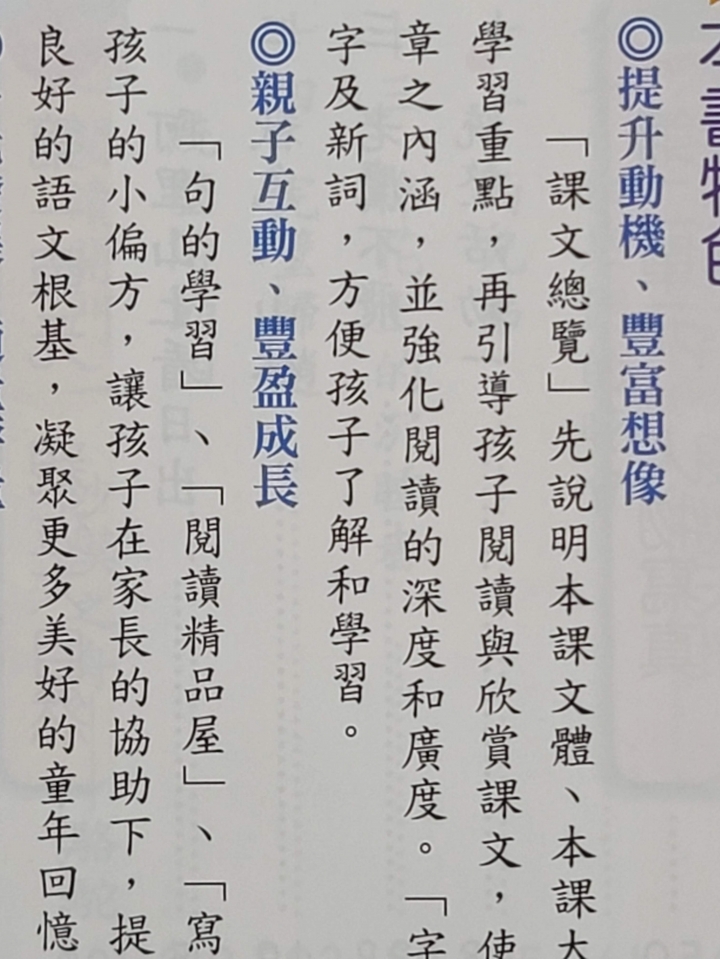 本書特色
◎提升動機、豐富想像
「課文總覽」先說明本課文體、本課大
學習重點，再引導孩子閱讀與欣賞課文，使
章之內涵，並強化閱讀的深度和廣度。「字
字及新詞，方便孩子了解和學習。
◎親子互動、豐盈成長
「句的學習」、「閱讀精品屋」、「寫
孩子的小偏方，讓孩子在家長的協助下，提
良好的語文根基，凝聚更多美好的童年回憶